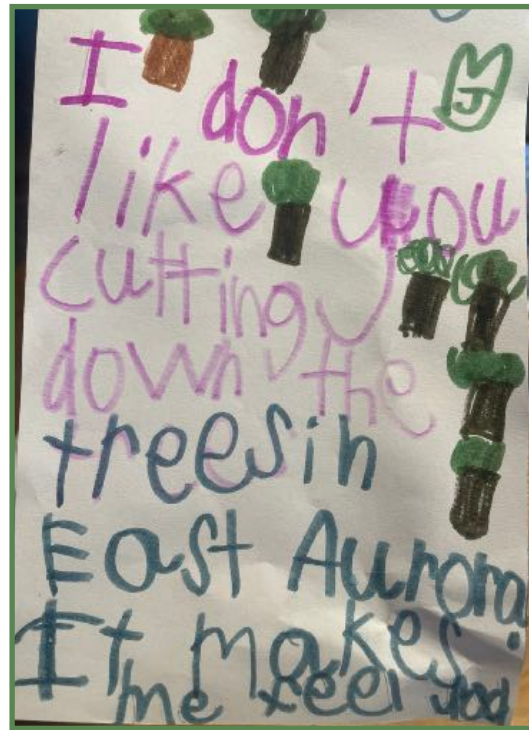 I don't
like you
cutting
down the
trees in
East Aurora.
It makes
me feel sad